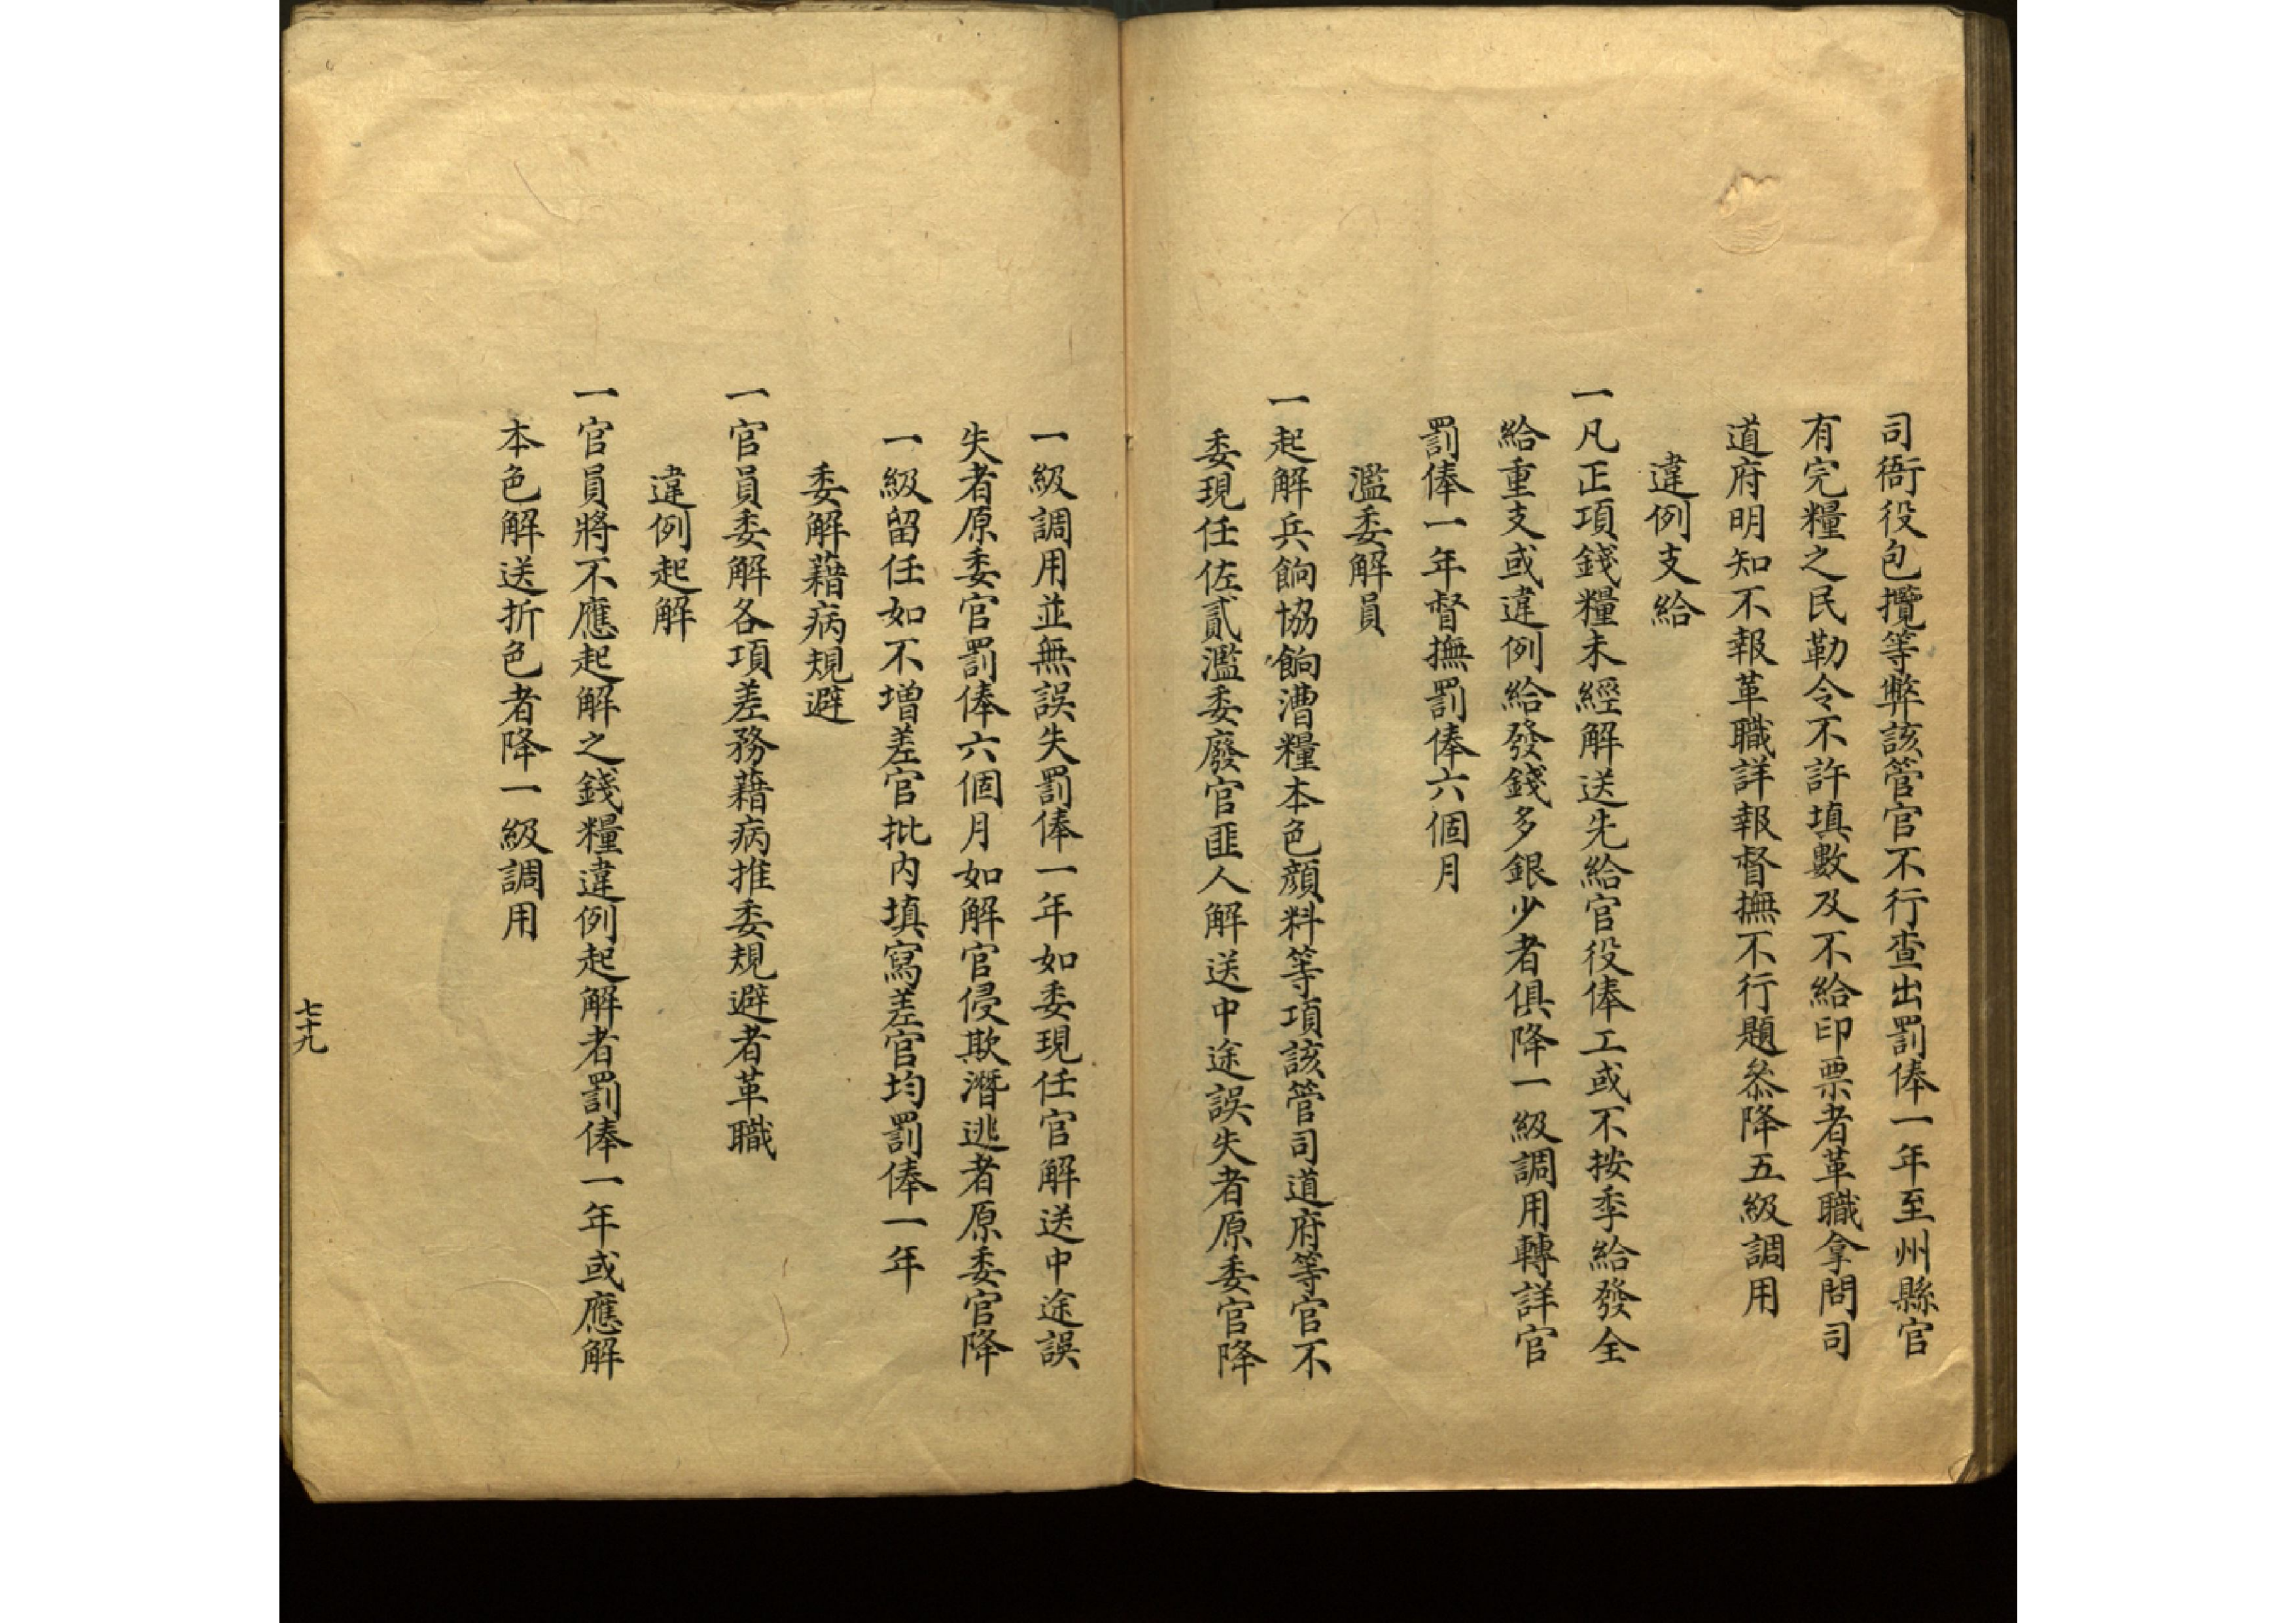 司衙役包攬等弊該管官不行查出罰俸一年至州縣官
有完糧之民勒令不許填數及不給印票者革職拿問司
道府明知不報革職詳報督撫不行題叅降五級調用
違例支給
一凡正項錢糧未經解送先給官役俸工或不按季給發全
給重支或違例給發錢多銀少者俱降一級調用轉詳官
罰俸一年督撫罰俸六個月
濫委解員
一起解兵餉協餉漕糧本色顏料等項該管司道府等官不
委現任佐貳濫委廢官匪人解送中途誤失者原委官降
一級調用並無誤失罰俸一年如委現任官解送中途誤
失者原委官罰俸六個月如解官侵欺潛逃者原委官降
一級留任如不增差官批內填寫差官均罰俸一年
委解藉病規避
一官員委解各項差務藉病推委規避者革職
違例起解
一官員將不應起解之錢糧違例起解者罰俸一年或應解
本色解送折色者降一級調用
七十九